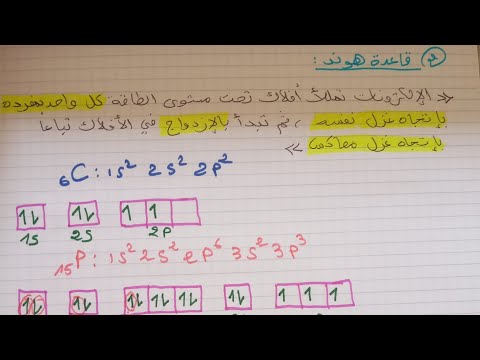 * قاعدة هوند :
« الإلكترونات تملأ أفلاك تحت مستوى الطاقة كل واحد بمفرده
بإتجاه غزل نفسه ، ثم تبدأ بالإزدواج في الأفلاك تباعا
بإتجاه غزل معاكس »
₆C : 1s² 2s² 2p²
1↓ 1↓ 1 1
1S 2S 2p
₁₅P : 1s² 2s² 2p⁶ 3s² 3p³
1↓ 1↓ 1↓ 1↓ 1↓ 1↓ 1 1 1